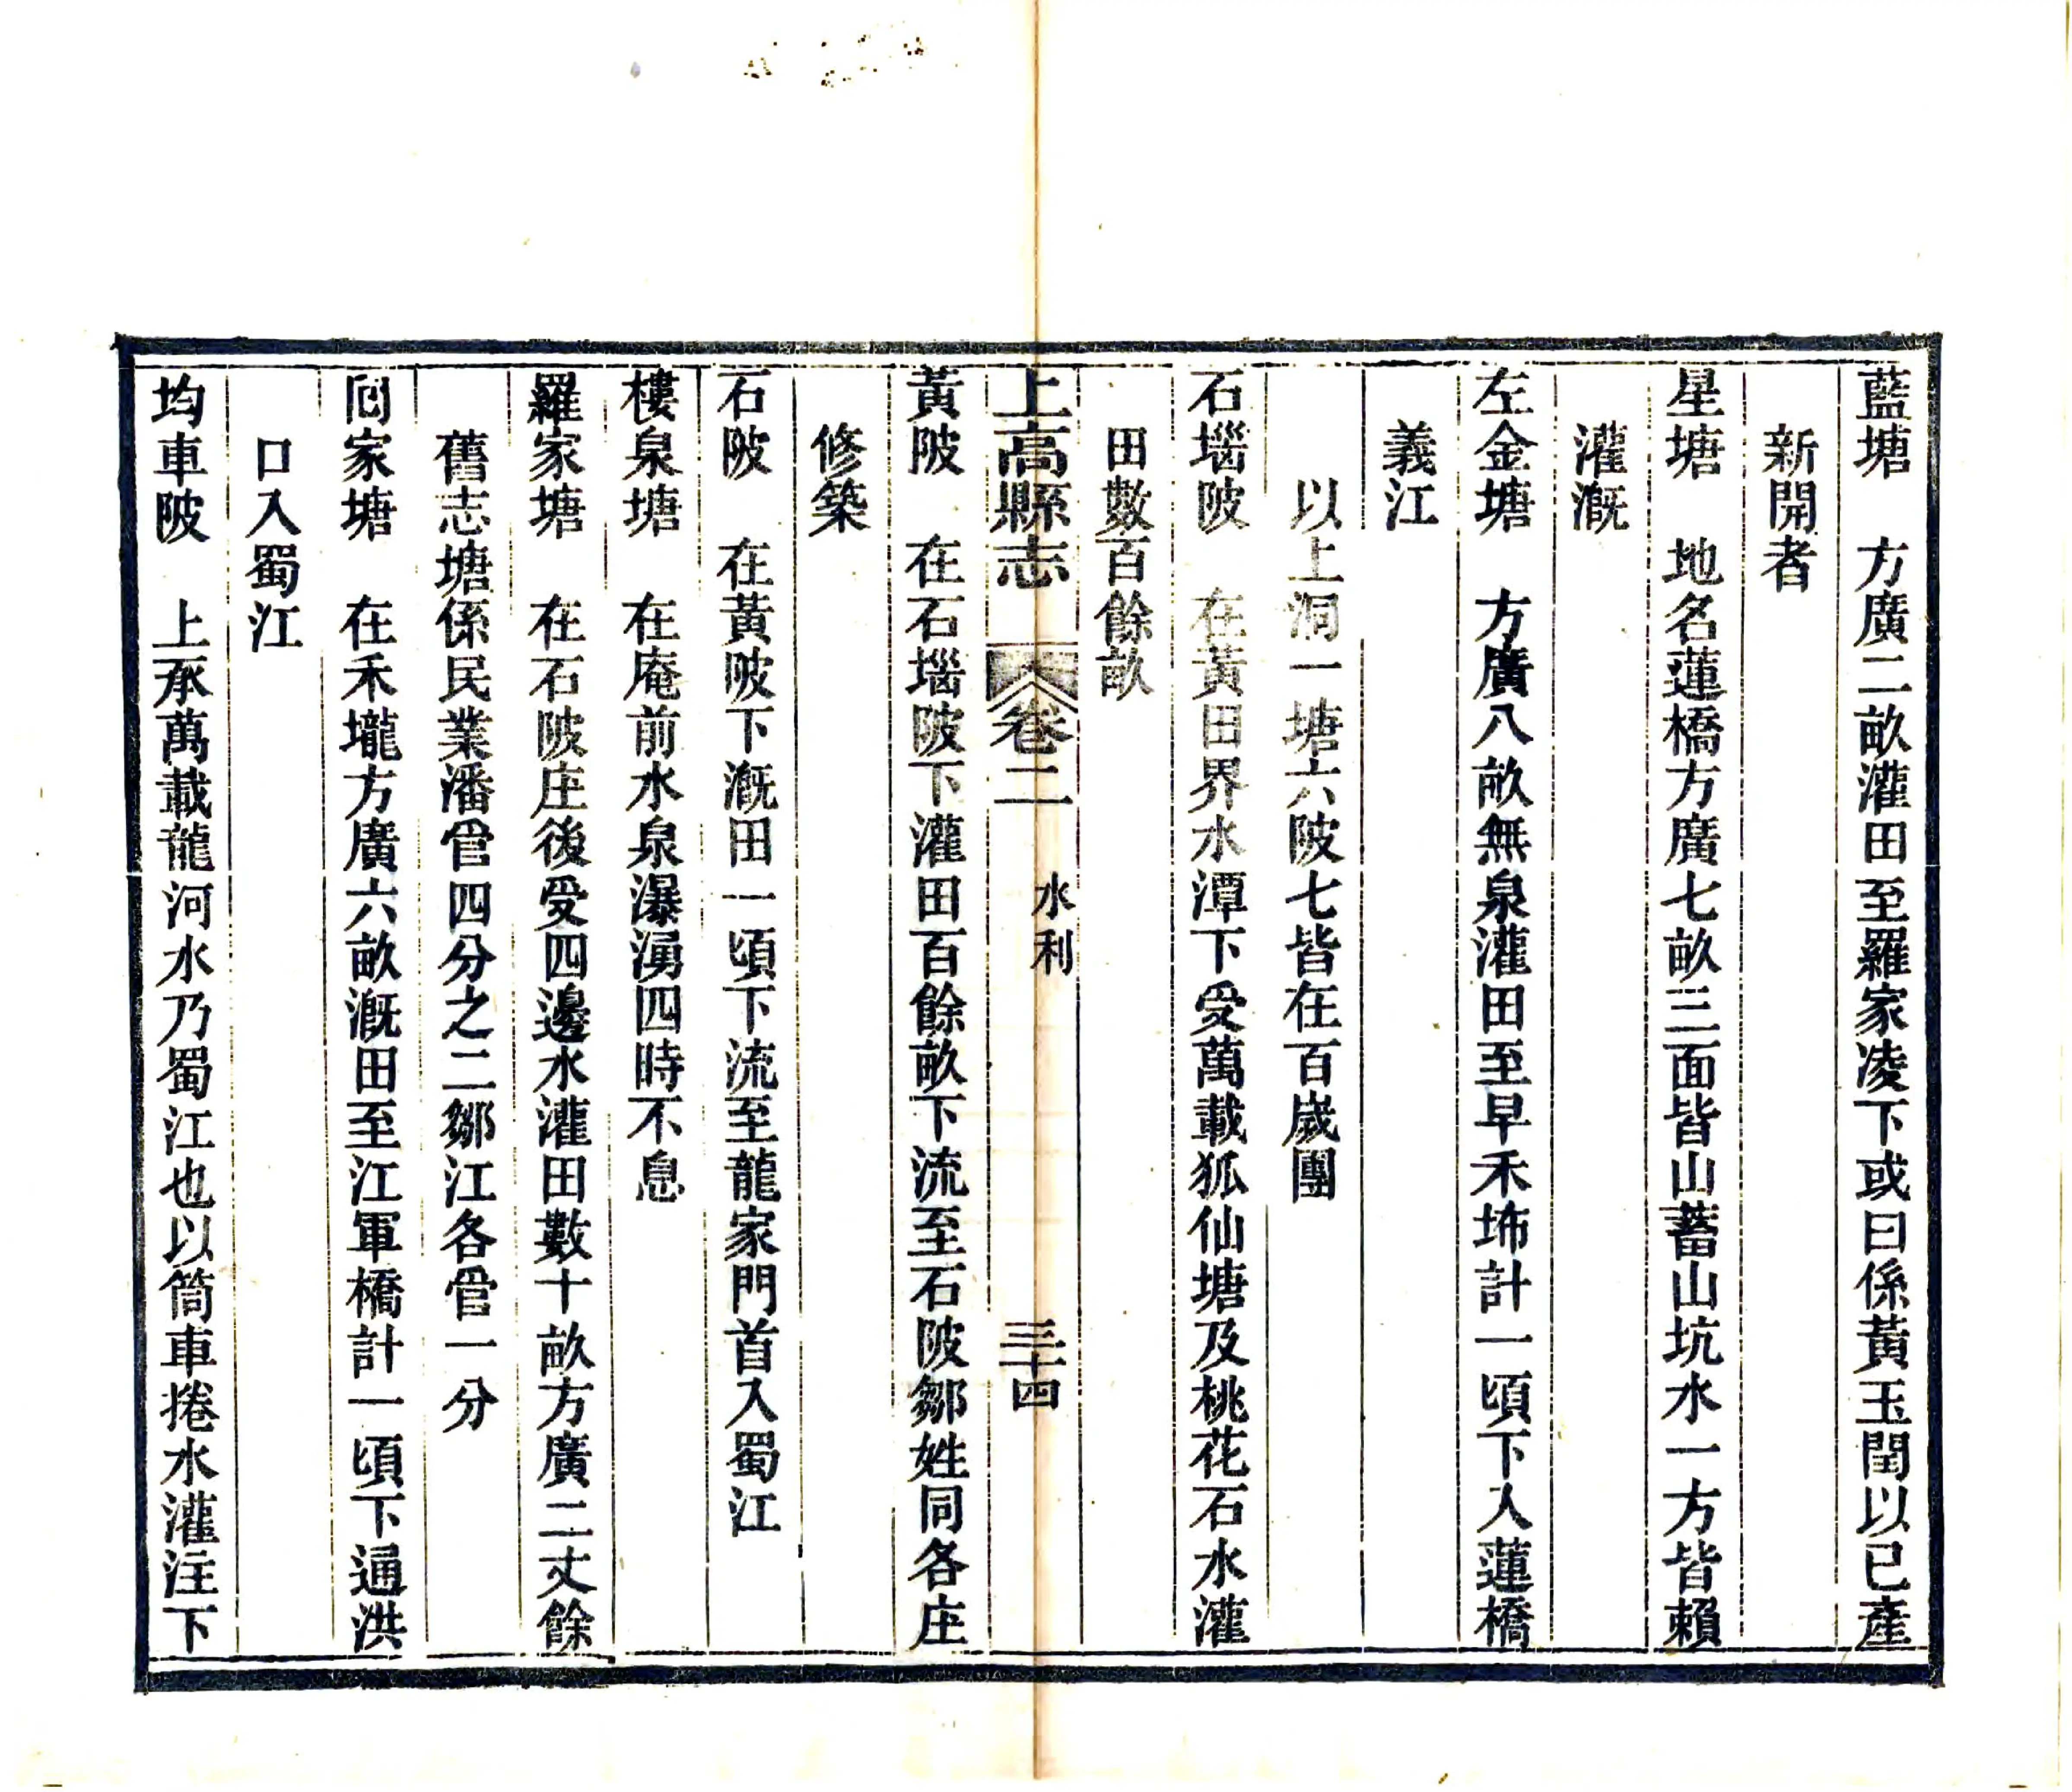 藍塘　方廣二畝灌田至羅家凌下或曰係黃玉閏以已產
新開者
星塘　地名蓮橋方廣七畝三面皆山蓄山坑水一方皆賴
灌溉
左金塘　方廣八畝無泉灌田至早禾㘵計一頃下入蓮橋
義江
以上洞一塘六陂七皆在百嵗團
石堖陂　在黃田界水潭下受萬載狐仙塘及桃花石水灌
田數百餘畝
上高縣志　卷二　水利　三十四
黃陂　在石堖陂下灌田百餘畝下流至石陂鄒姓同各庄
修築
石陂　在黃陂下溉田一頃下流至龍家門首入蜀江
樓泉塘　在庵前水泉瀑湧四時不息
羅家塘　在石陂庄後受四邊水灌田數十畝方廣二丈餘
舊志塘係民業潘管四分之二鄒江各管一分
囘家塘　在禾壠方廣六畝溉田至江軍橋計一頃下通洪
口入蜀江
均車陂　上承萬載龍河水乃蜀江也以筒車捲水灌注下